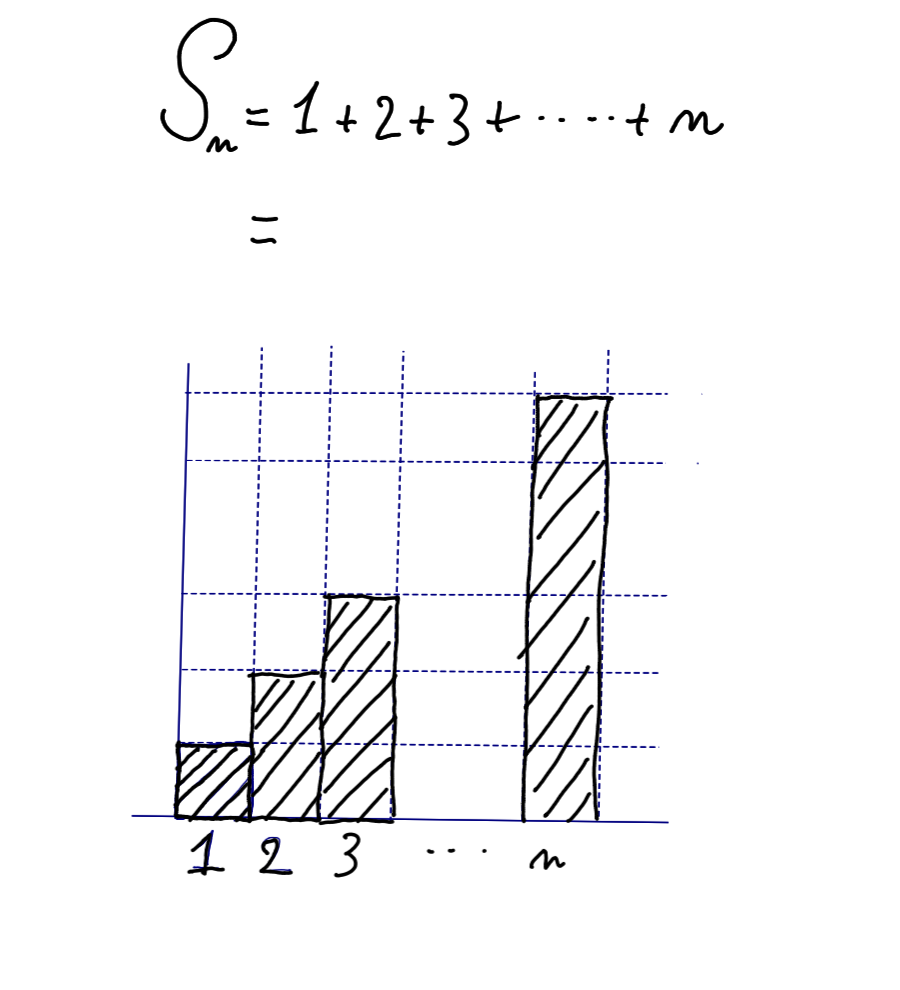 Sn = 1 + 2 + 3 + ..... + n
=
1 2 3 ... n